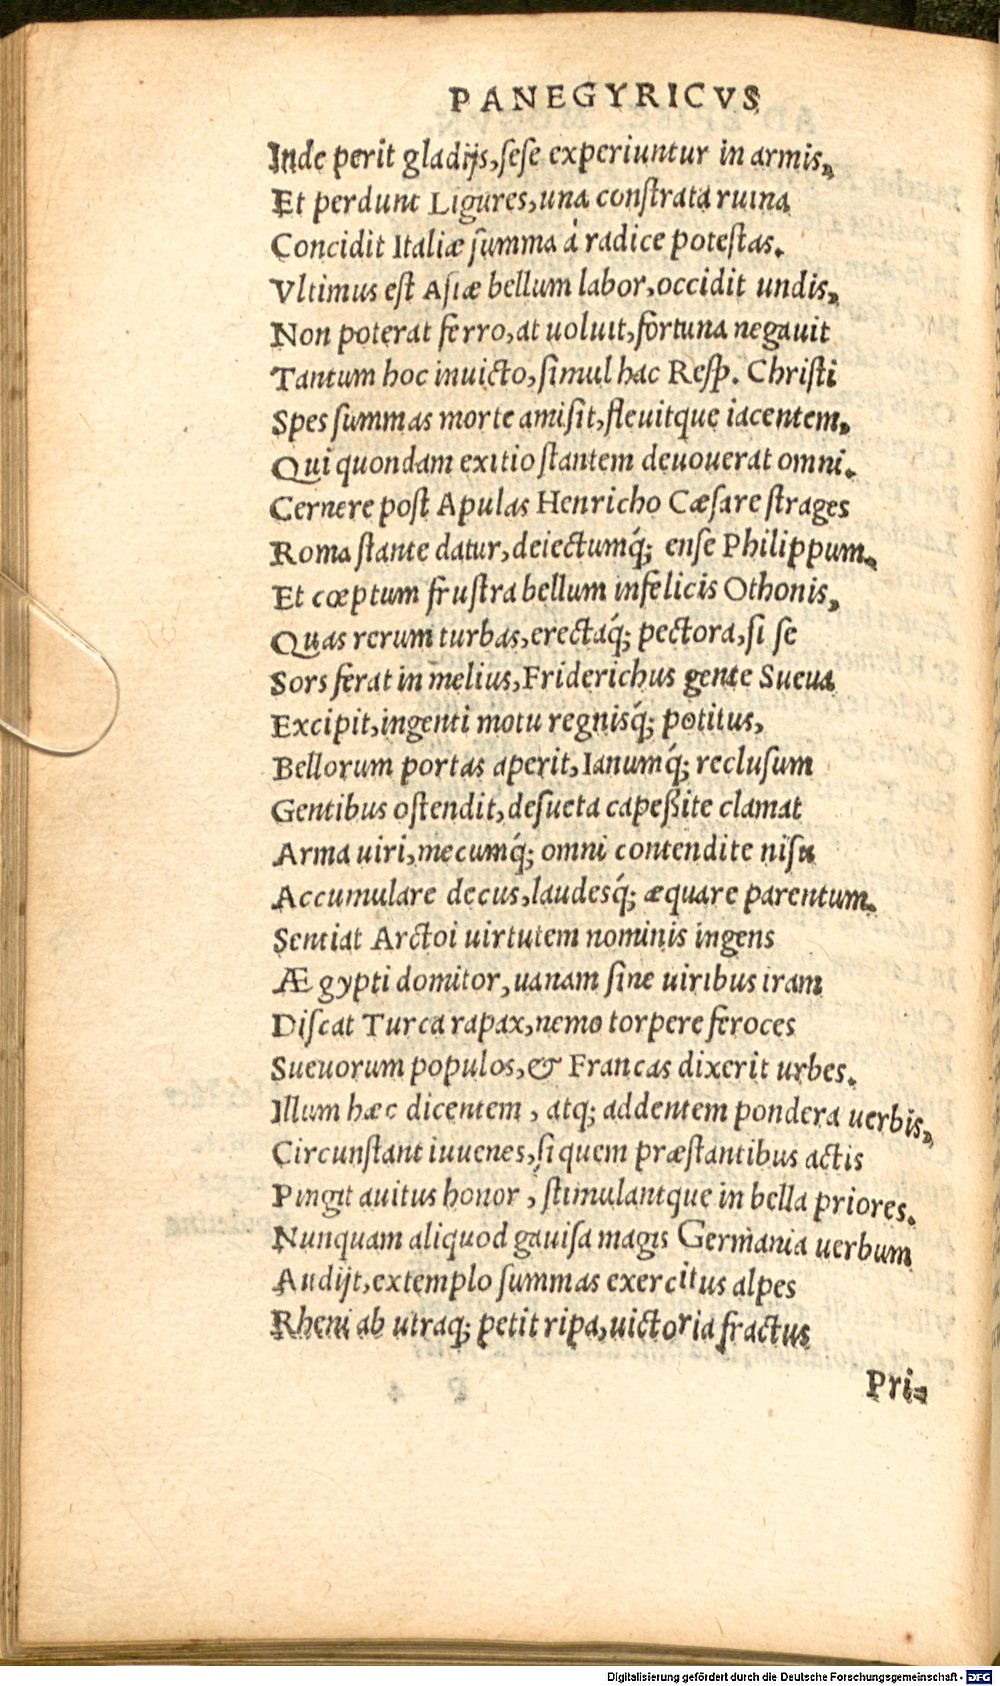 PANEGYRICVS
Inde perit gladijs, sese experiuntur in armis,
Et perdunt Ligures, una constrata ruina
Concidit Italiæ summa á radice potestas.
Vltimus est Asiæ bellum labor, occidit undis,
Non poterat ferro, at uoluit, fortuna negauit
Tantum hoc inuicto, simul hac Resp. Christi
Spes summas morte amisit, fleuitque iacentem,
Qui quondam exitio stantem deuouerat omni.
Cernere post Apulas Henricho Cæsare strages
Roma stante datur, deiectumq́; ense Philippum.
Et cœptum frustra bellum infelicis Othonis,
Quas rerum turbas, erectaq́; pectora, si se
Sors ferat in melius, Friderichus gente Sueua
Excipit, ingenti motu regnisq́; potitus,
Bellorum portas aperit, Ianumq́; reclusum
Gentibus ostendit, desueta capeßite clamat
Arma uiri, mecumq́; omni contendite nisu
Accumulare decus, laudesq́; æquare parentum.
Sentiat Arctoi uirtutem nominis ingens
Ægypti domitor, uanam sine uiribus iram
Discat Turca rapax, nemo torpere feroces
Sueuorum populos, & Francas dixerit urbes.
Illum hæc dicentem, atq; addentem pondera uerbis,
Circunstant iuuenes, si quem præstantibus actis
Pingit auitus honor, stimulantque in bella priores.
Nunquam aliquod gauisa magis Germania uerbum
Audijt, extemplo summas exercitus alpes
Rheni ab utraq; petit ripa, uictoria fractus
Pri-
Digitalisierung gefördert durch die Deutsche Forschungsgemeinschaft - DFG